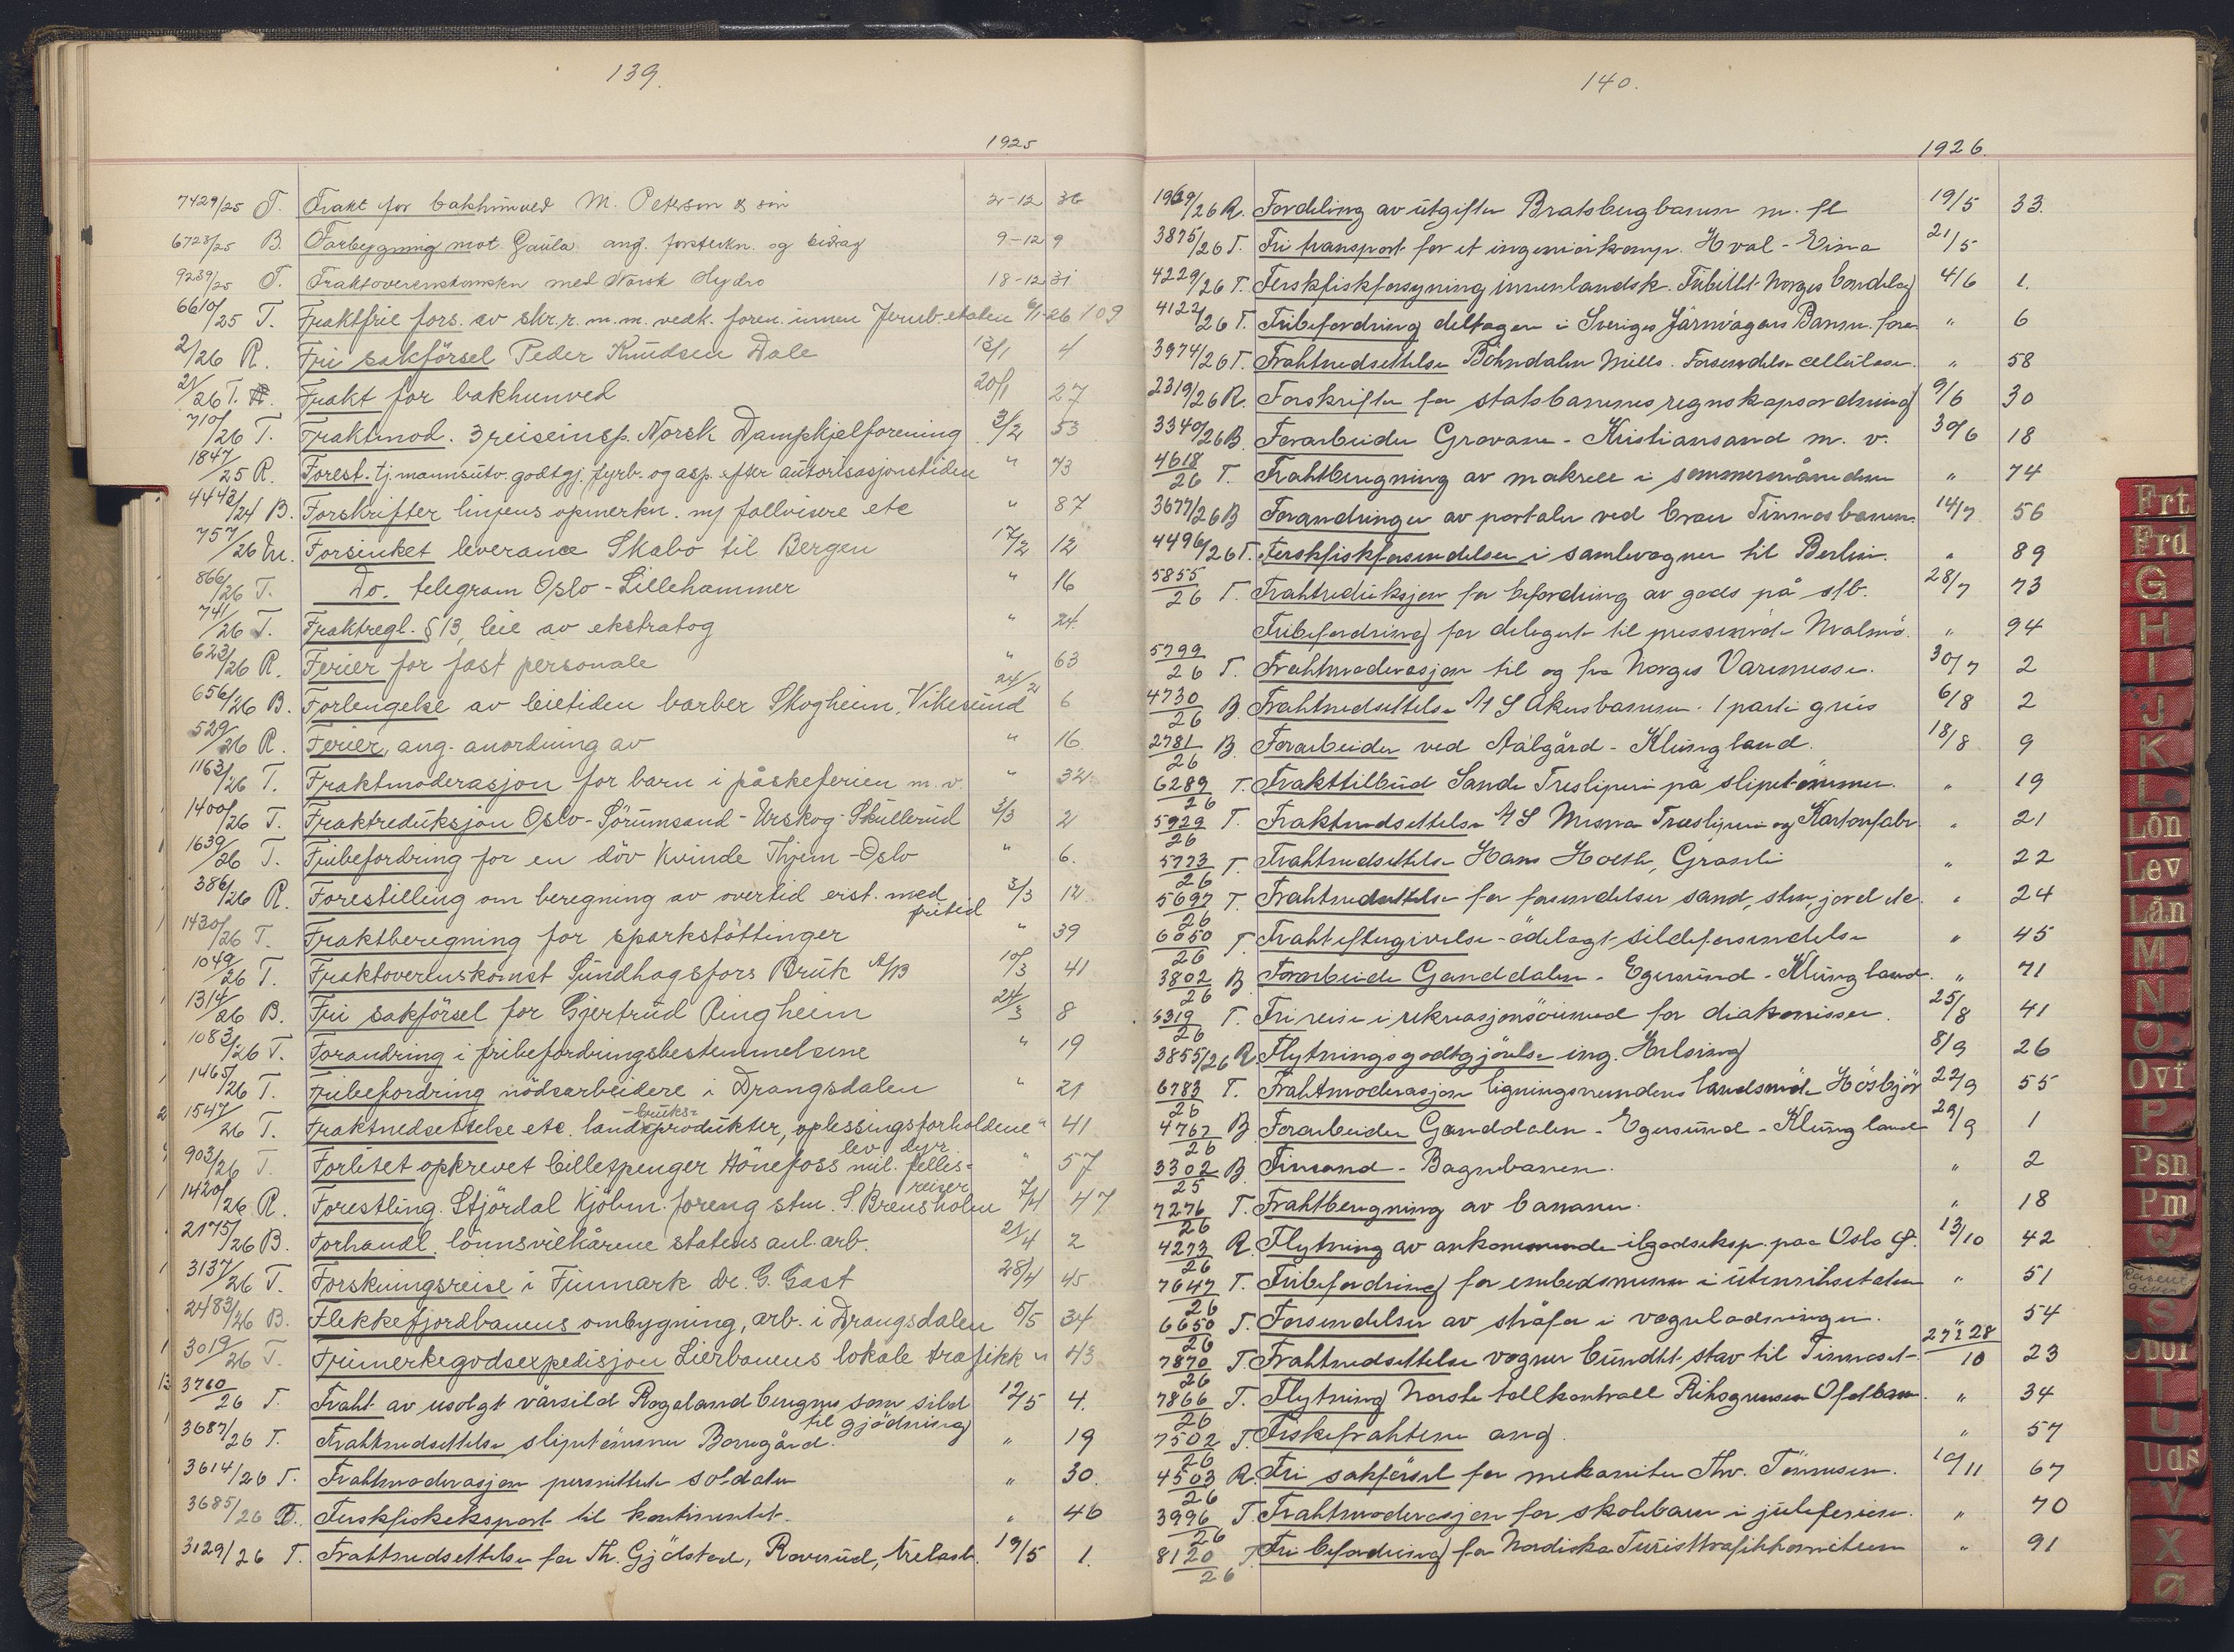 139.
1925
7429/25 T. Frakt for bakhunved M. Peterson & søn 2-12 36
6723/25 B. Forbygning mot Gaula ang. forsterkn. og bidrag 9-12 9
9239/25 T. Fraktoverenskomsten med Norsk Hydro 18-12 31
6610/25 T. Fraktfrie fors. av skr.r. m.m. vedk. foren. innen Jernb.-etaten 6/1-26 109
2/26 R. Fri sakförsel Peder Knudsen Dale 13/1 4
21/26 T. Frakt for bakhunved 20/1 27
710/26 T. Fraktmod. 3 reiseinsp. Norsk Dampkjelforening 3/2 53
1847/25 R. Forest. tj.mannsutv. godtgj. fyrb. og asp. efter autorisasjonstiden " 73
4443/24 B. Forskrifter linjens opmerkn. m/ fallvisere etc " 87
757/26 M. Forsinket leveranse Skabo til Bergen 17/2 12
866/26 T. Do. telegram Oslo - Lillehammer " 16
741/26 T. Fraktregl. § 13, leie av ekstratog " 24.
623/26 R. Ferier for fast personale " 63
656/26 B. Forlengelse av leietiden barber Skogheim, Vikesund 24/2 6
529/26 R. Ferier, ang. anordning av " 16.
1163/26 T. Fraktmoderasjon for barn i påskeferien m.v. " 32.
1400/26 T. Fraktreduksjon Oslo - Sörumsand - Urskog - Skullerud 3/3 2
1639/26 T. Fribefordring for en döv kvinde Thjem - Oslo " 6.
386/26 R. Forestilling om beregning av overtid erst. med fritid 3/3 12
1430/26 T. Fraktberegning for sparkstöttinger " 39
1049/26 T. Fraktoverenskomst Sundhagsfors Bruk A/B 10/3 41
1314/26 B. Fri sakförsel for Gjertrud Ringheim 24/3 8
1083/26 T. Forandring i fribefordringsbestemmelsene " 19
1465/26 T. Fribefordring nödsarbeidere i Drangsdalen " 21
1547/26 T. Fraktnedsettelse etc. landbruksprodukter, oplessingsforholdene lev. dyr " 41
903/26 T. Forlitet opkrevet billetpenger Hönefoss mil. fellesreiser " 57
1420/26 R. Forestling. Stjördal Kjöbm. foreng stm. S. Brensholm 7/4 47
2175/26 B. Forhandl. lönnsvilkårene statens anl. arb. 21/4 2
3137/26 T. Forskningsreise i Finmark dr. G. Gast 28/4 45
2483/26 B. Flekkefjordbanens ombygning, arb. i Drangsdalen 5/5 34
3019/26 T. Frimerkegodsexpedisjon Lierbanens lokale trafikk " 43
3760/26 T. Fraht av usolgt vårsild Rogaland beregnes som sild til gjödning 12/5 4.
3687/26 T. Frahtnedsettelse slipetömmer Borregård. " 19
3614/26 T. Frahtmoderasjon permitterte soldater " 30.
3685/26 T. Ferskfiskeksport til kontinentet. " 46
3129/26 T. Frahtnedsettelse for Th. Gjölstad, Roverud, trelast. 19/5 1.
140.
1926.
1969/26 R. Fordeling av utgifter Bratsbergbanen m. fl 19/5 33.
3875/26 T. Fri transport for et ingeniörkomp. Hval - Eina 21/5
4229/26 T. Ferskfiskforsyning innenlandsk. Fribillet Norges Bondelag 4/6 1.
4122/26 T. Fribefordring deltagere i Sveriges Järnvägars Banm. fören. " 6
3974/26 T. Frahtnedsettelse Böhnsdalen Mills. Forsendelse cellulose. " 58
2319/26 R. Forskrifter for statsbanenes regnskapsordning 9/6 30
3340/26 B Forarbeider Grovane - Kristiansand m. v. 30/6 18
4618/26 T. Frahtberegning av makrell i sommermånedene " 74
3677/26 B Forandringer av portaler ved broer Tinnosbanen. 14/7 56
4496/26 T. Ferskfiskforsendelser i samlevogner til Berlin. " 89
5855/26 T. Frahtreduksjon for befordring av gods på stb. 28/7 73
Fribefordring for delegerte til pressemöde Malmö. " 94
5799/26 T. Frahtmoderasjon til og fra Norges Varemesse. 30/7 2
4730/26 B. Frahtnedsettelse A/S Akersbanene. 1 parti grus 6/8 2
2781/26 B. Forarbeider ved Aalgård - Klungland. 18/8 9
6289/26 T. Frakttilbud Sande Tresliperi på slipetömmer. " 19
5929/26 T. Fraktnedsettelse A/S Mesna Træsliperi og Kartonfabr. " 21
5773/26 T. Frahtnedsettelse Hans Hoelh, Gransli " 22
5697/26 T. Frahtnedsettelse for forsendelser sand, sten, jord etc. " 24
6050/26 T. Frahtefterg­ivelse - ödelagt sildeforsendelse " 45
3802/26 B Forarbeide Ganddalen - Egersund - Klungland. " 71
6319/26 T. Fri reise i rekreasjonsöiemed for diakonisser. 25/8 41
3855/26 R. Flytningsgodtgjörelse ing. Helsing 8/9 26
6783/26 T. Frahtmoderasjon ligningsnevndens landsmöte Hösbjör 22/9 55
4767/26 B Forarbeider Ganddalen - Egersund - Klungland 29/9 1
3302/25 B. Finsand - Bagnbanen. " 2
7276/26 T. Frahtberegning av bananer. " 18
4273/26 R. Flytning av ankommende ilgodseksp. paa Oslo Ö. 13/10 42
7647/26 T. Fribefordring for embedsmenn i utenriksetaten " 51
6650/26 T. Forsendelser av stråfor i vognladninger. " 54
7870/26 T. Frahtnedsettelse vogner bundtet stav til Tinnoset 27 i 28/10 23
7866/26 T. Flytning Norske tollkontroll Riksgrensen Ofotbanen. " 34
7502/26 T. Fiskefrahtene ang. " 57
4503/26 R. Fri sakförsel for mekaniker Thv. Tönnesen. 10/11 67
3996/26 T. Frahtmoderasjon for skolebarn i juleferien. " 70
8120/26 T. Fri befordring for Nordiska Turisttrafikkomiteen " 91
Frt
Frd
G
H
I
J
K
L
Lön
Lev
Lån
M
N
O
Ovf
P
Psn
Pm
Q
S
Spor
T
U
Uds
V
X
Ø